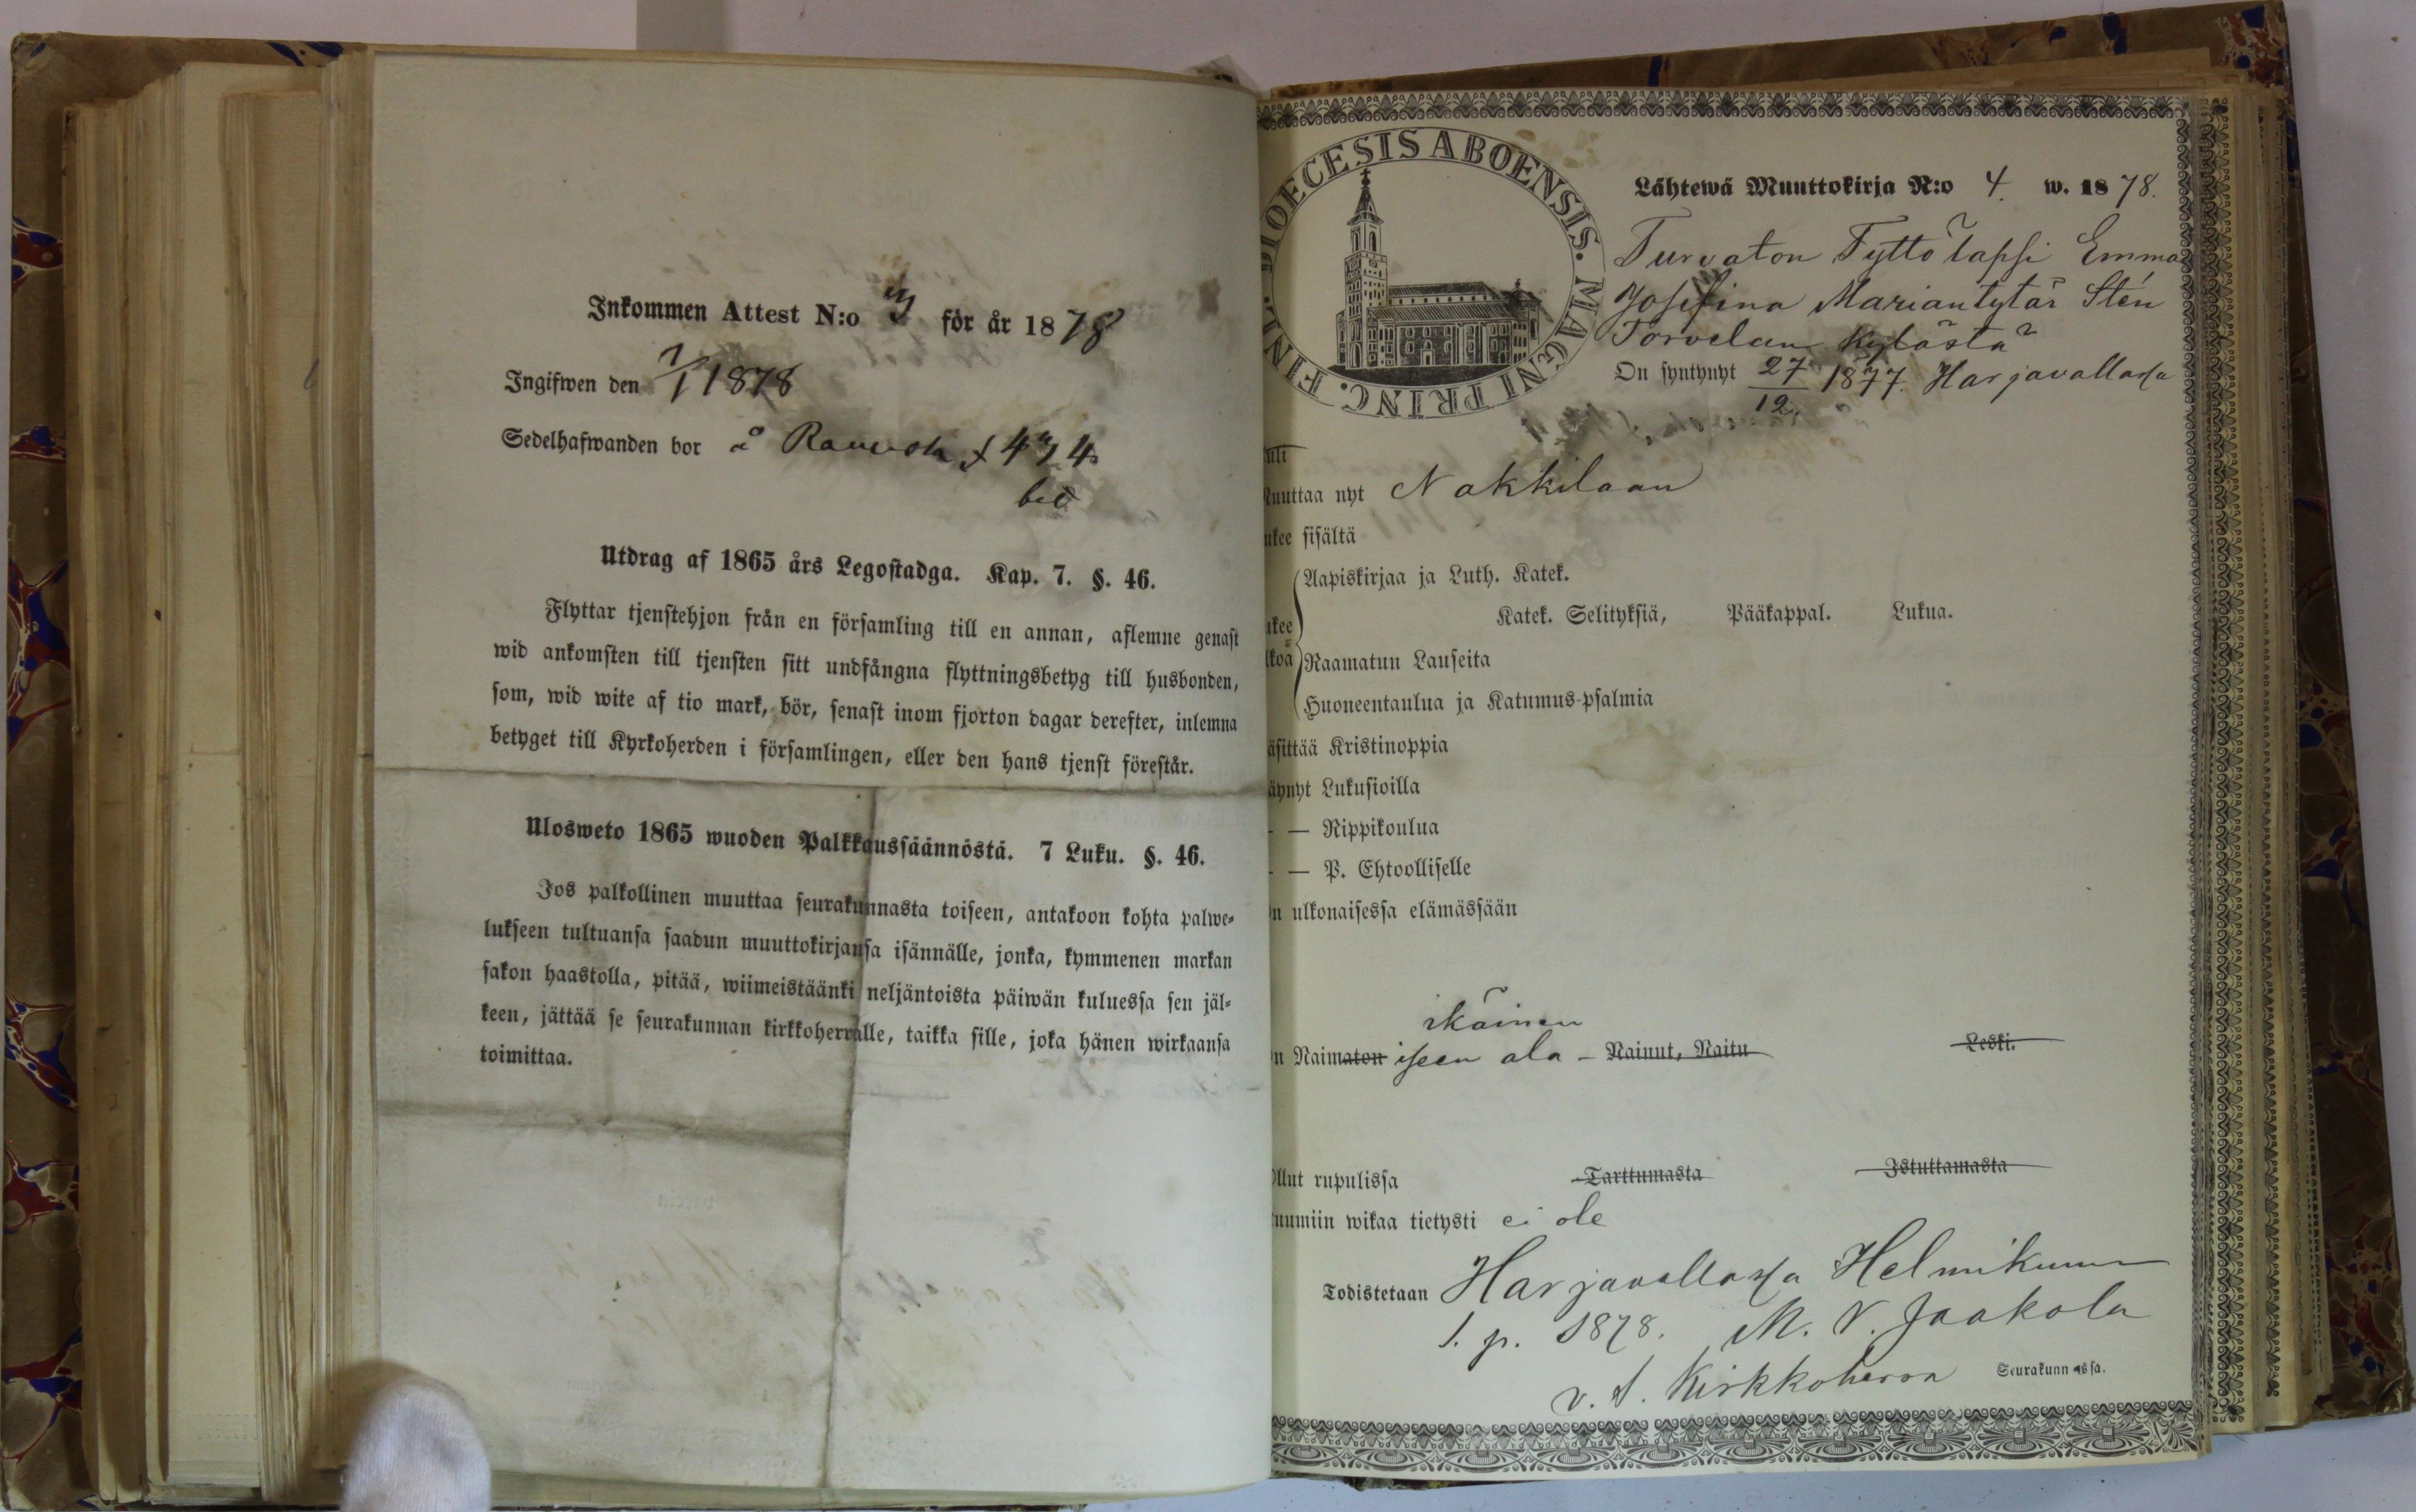 Inkommen Attest N:o 3 för år 1878
Ingifwen den 7/1 1878
Sedelhafwanden bor å
bet
Utdrag af 1865 års Legostadga. Kap. 7. §. 46.
Flyttar tjenstehjon från en församling till en annan, aflemne genast
wid ankomsten till tjensten sitt undfångna flyttningsbetyg till husbonden,
som, wid wite af tio mark, bör, senast inom fjorton dagar derefter, inlemna
betyget till Kyrkoherden i församlingen, eller den hans tjenst förestår.
Ulosweto 1865 wuoden Palkkaussäännöstä. 7 Luku. §. 46.
Jos palkollinen muuttaa seurakunnasta toiseen, antakoon kohta palwe-
lukseen tultuansa saadun muuttokirjansa isännälle, jonka, kymmenen markan
sakon haastolla, pitää, wiimeistäänki neljäntoista päiwän kuluessa sen jäl-
keen, jättää se seurakunnan kirkkoherralle, taikka sille, joka hänen wirkaansa
toimittaa.
DIOECESIS ABOENSIS. MAGNI PRINC. FINL.
Lähtewä Muuttokirja N:o 4. w. 1878.
Turvaton Tyttölapsi Emma
Josefina Mariantytär Stén
Torvelan kylästä
On syntynyt 27/12 1877. Harjavallassa
uli
uuttaa nyt Nakkilaan
ukee sisältä
Aapiskirjaa ja Luth. Katek.
ukee Katek. Selityksiä, Pääkappal. Lukua.
lkoa Raamatun Lauseita
Huoneentaulua ja Katumus-psalmia
äsittää Kristinoppia
äynyt Lukusioilla
— — Rippikoulua
— — P. Ehtoolliselle
n ulkonaisessa elämässään
ikäinen
n Naimaton iseen ala – Nainut, Naitu Leski.
Ollut rupulissa Tarttumasta Istuttamasta
uumiin wikaa tietysti ei ole
Todistetaan Harjavallassa Helmikuun
1. p. 1878. M. V. Jaakola
v. t. Kirkkoherra Seurakunnassa.